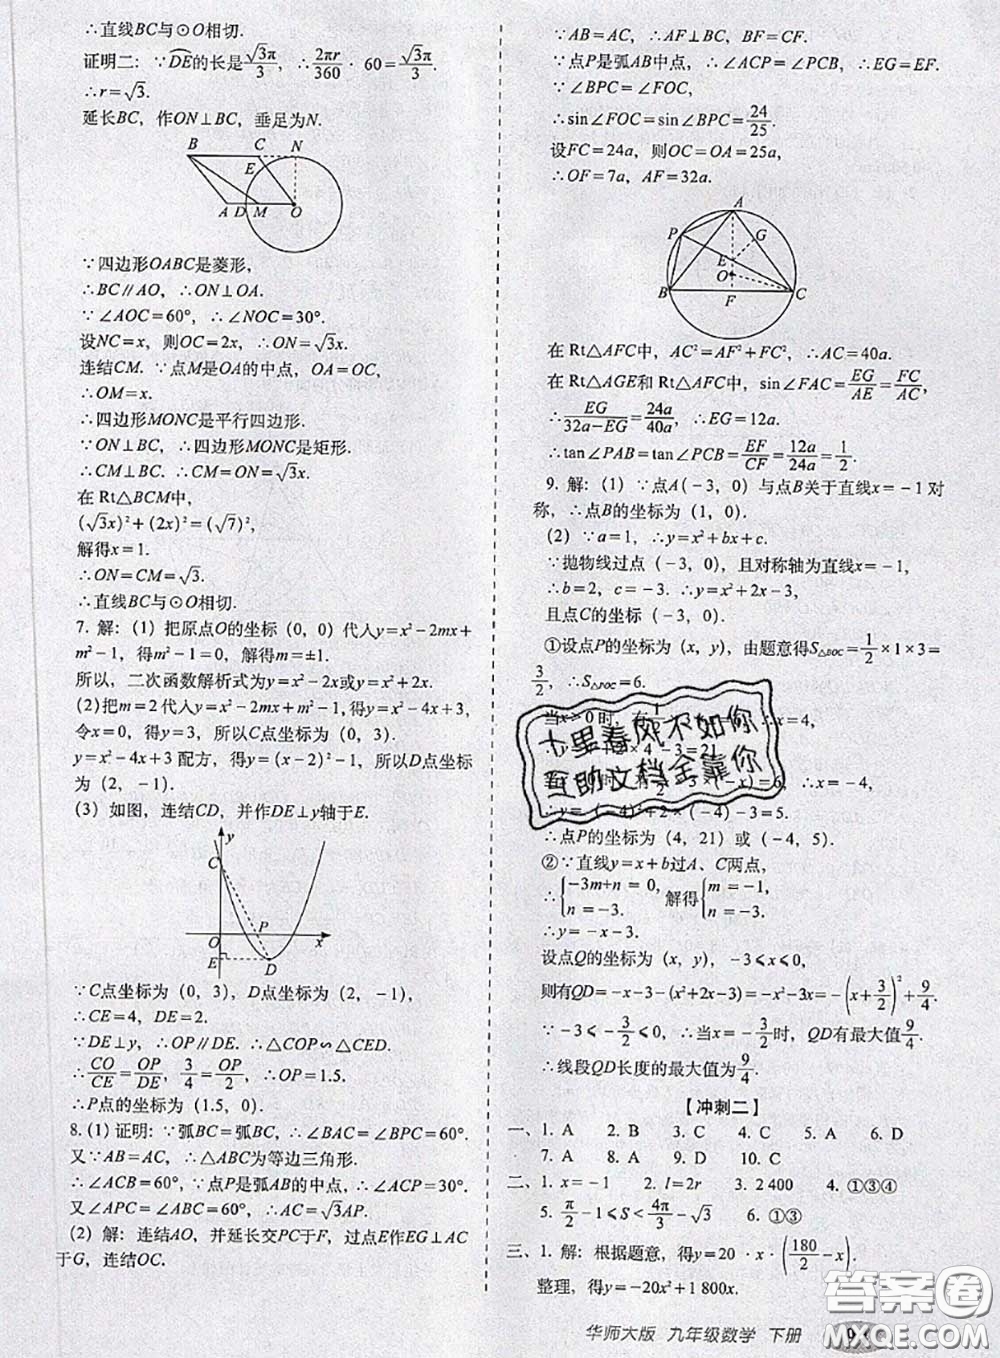 ∴直线BC与⊙O相切.
证明二：∵DE的长是√3π/3，∴2πr/360 · 60=√3π/3.
∴r=√3.
延长BC，作ON⊥BC，垂足为N.
B C N
E
A D M O
∵四边形OABC是菱形，
∴BC∥AO，∴ON⊥OA.
∵∠AOC=60°，∴∠NOC=30°.
设NC=x，则OC=2x，∴ON=√3x.
连结CM. ∵点M是OA的中点，OA=OC，
∴OM=x.
∴四边形MONC是平行四边形.
∵ON⊥BC，∴四边形MONC是矩形.
∴CM⊥BC. ∴CM=ON=√3x.
在 Rt△BCM中，
(√3x)²+(2x)²=(√7)²,
解得x=1.
∴ON=CM=√3.
∴直线BC与⊙O相切.
7. 解：(1) 把原点O的坐标 (0，0) 代入y=x²-2mx+
m²-1，得m²-1=0，解得m=±1.
所以，二次函数解析式为y=x²-2x或y=x²+2x.
(2)把m=2代入y=x²-2mx+m²-1,得y=x²-4x+3,
令x=0，得y=3，所以C点坐标为 (0，3).
y=x²-4x+3 配方，得y=(x-2)²-1，所以D点坐标
为 (2，-1).
(3) 如图，连结CD，并作DE⊥y轴于E.
y
C
O P x
E D
∵C点坐标为 (0，3)，D点坐标为 (2，-1)，
∴CE=4，DE=2.
∵DE⊥y，∴OP∥DE. ∴△COP∽△CED.
∴CO/CE=OP/DE，3/4=OP/2，∴OP=1.5.
∴P点的坐标为 (1.5，0).
8. (1) 证明：∵弧BC=弧BC，∴∠BAC=∠BPC=60°.
又∵AB=AC，∴△ABC为等边三角形.
∴∠ACB=60°，∵点P是弧AB的中点，∴∠ACP=30°.
又∠APC=∠ABC=60°，∴AC=√3AP.
(2) 解：连结AO，并延长交PC于F，过点E作EG⊥AC
于G，连结OC.
∵AB=AC，∴AF⊥BC，BF=CF.
∵点P是弧AB中点，∴∠ACP=∠PCB，∴EG=EF.
∵∠BPC=∠FOC，
∴sin∠FOC=sin∠BPC=24/25.
设FC=24a，则OC=OA=25a，
∴OF=7a，AF=32a.
A
P G
E
O
B F C
在 Rt△AFC中，AC²=AF²+FC²，∴AC=40a.
在 Rt△AGE和 Rt△AFC中，sin∠FAC=EG/AE=FC/AC，
∴EG/(32a-EG)=24a/40a，∴EG=12a.
∴tan∠PAB=tan∠PCB=EF/CF=12a/24a=1/2.
9. 解：(1) ∵点A(-3，0) 与点B关于直线x=-1对
称，∴点B的坐标为 (1，0).
(2) ∵a=1，∴y=x²+bx+c.
∵抛物线过点 (-3，0)，且对称轴为直线x=-1，
∴b=2，c=-3. ∴y=x²+2x-3,
且点C的坐标 (0，-3).
①设点P的坐标为 (x，y)，由题意得S△BOC=1/2×1×3=
3/2，∴S△POC=6.
当x>0时，有
x=4,
×4-3=21
=6，∴x=-4,
∴y=(-4)²+2×(-4)-3=5.
∴点P的坐标为 (4，21) 或 (-4，5).
②∵直线y=x+b过A、C两点，
∴{-3m+n=0, 解得{m=-1,
n=-3. n=-3.
∴y=-x-3.
设点Q的坐标为 (x，y)，-3≤x≤0,
则有QD=-x-3-(x²+2x-3)=-x²-3x=-(x+3/2)²+9/4.
∵-3≤-3/2≤0，∴当x=-3/2时，QD有最大值9/4.
∴线段QD长度的最大值为9/4.
【冲刺二】
一、1. A 2. B 3. C 4. C 5. A 6. D
7. A 8. A 9. D 10. C
二、1. x=-1 2. l=2r 3. 2 400 4. ①③④
5. π/2-1≤S<4π/3-√3 6. ①③
三、1. 解：根据题意，得y=20 · x · (180/2-x)，
整理，得y=-20x²+1 800x.
十里春风不如你
互助文档全靠你
华师大版 九年级数学 下册
答案圈
MXQE.COM